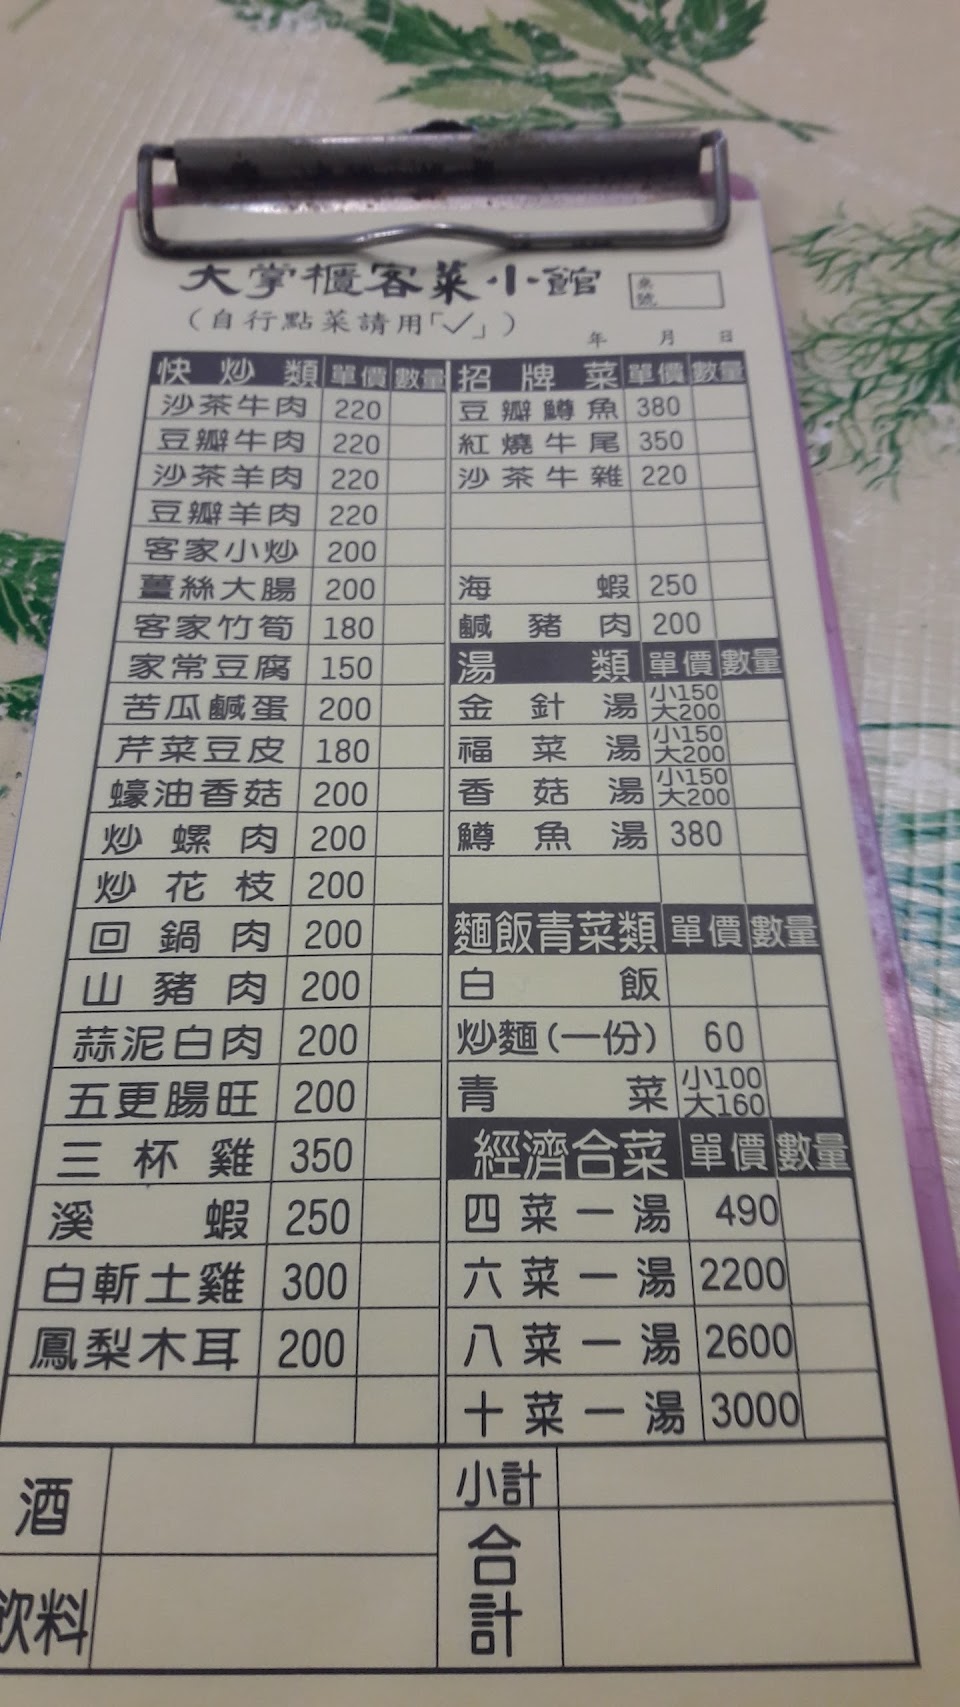 大掌櫃客菜小館
桌號
(自行點菜請用「✓」)
年 月 日
快炒類 單價 數量
沙茶牛肉 220
豆瓣牛肉 220
沙茶羊肉 220
豆瓣羊肉 220
客家小炒 200
薑絲大腸 200
客家竹筍 180
家常豆腐 150
苦瓜鹹蛋 200
芹菜豆皮 180
蠔油香菇 200
炒螺肉 200
炒花枝 200
回鍋肉 200
山豬肉 200
蒜泥白肉 200
五更腸旺 200
三杯雞 350
溪蝦 250
白斬土雞 300
鳳梨木耳 200
招牌菜 單價 數量
豆瓣鱒魚 380
紅燒牛尾 350
沙茶牛雜 220
海蝦 250
鹹豬肉 200
湯類 單價 數量
金針湯 小150 大200
福菜湯 小150 大200
香菇湯 小150 大200
鱒魚湯 380
麵飯青菜類 單價 數量
白飯
炒麵(一份) 60
青菜 小100 大160
經濟合菜 單價 數量
四菜一湯 490
六菜一湯 2200
八菜一湯 2600
十菜一湯 3000
酒
飲料
小計
合計